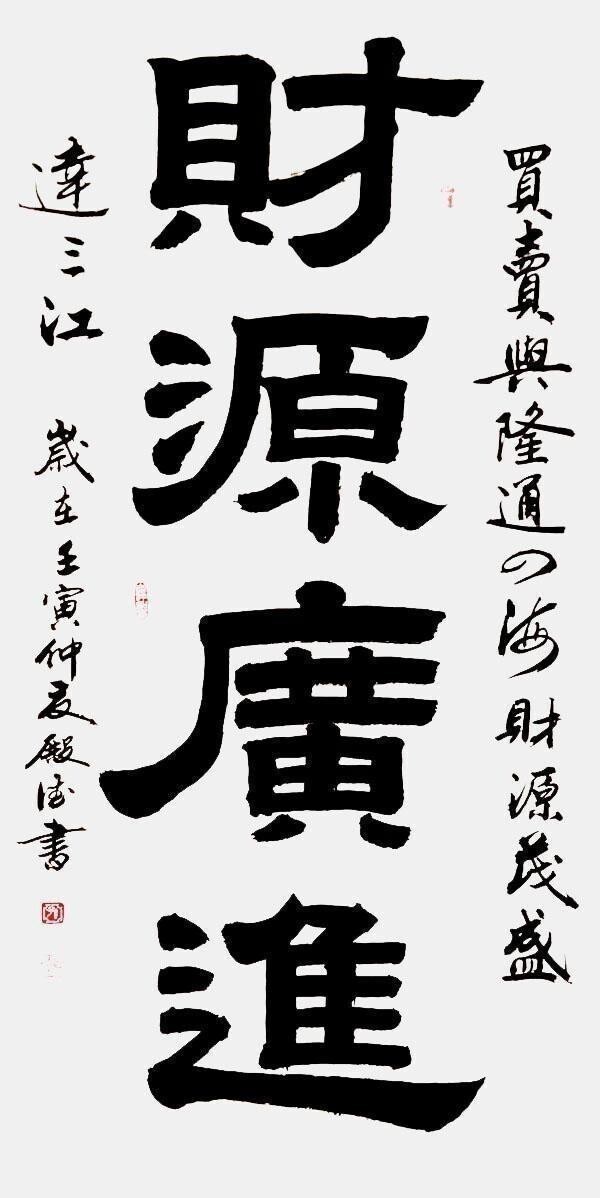 財源廣進
買賣興隆通四海財源茂盛
達三江 歲在壬寅仲夏殿德書